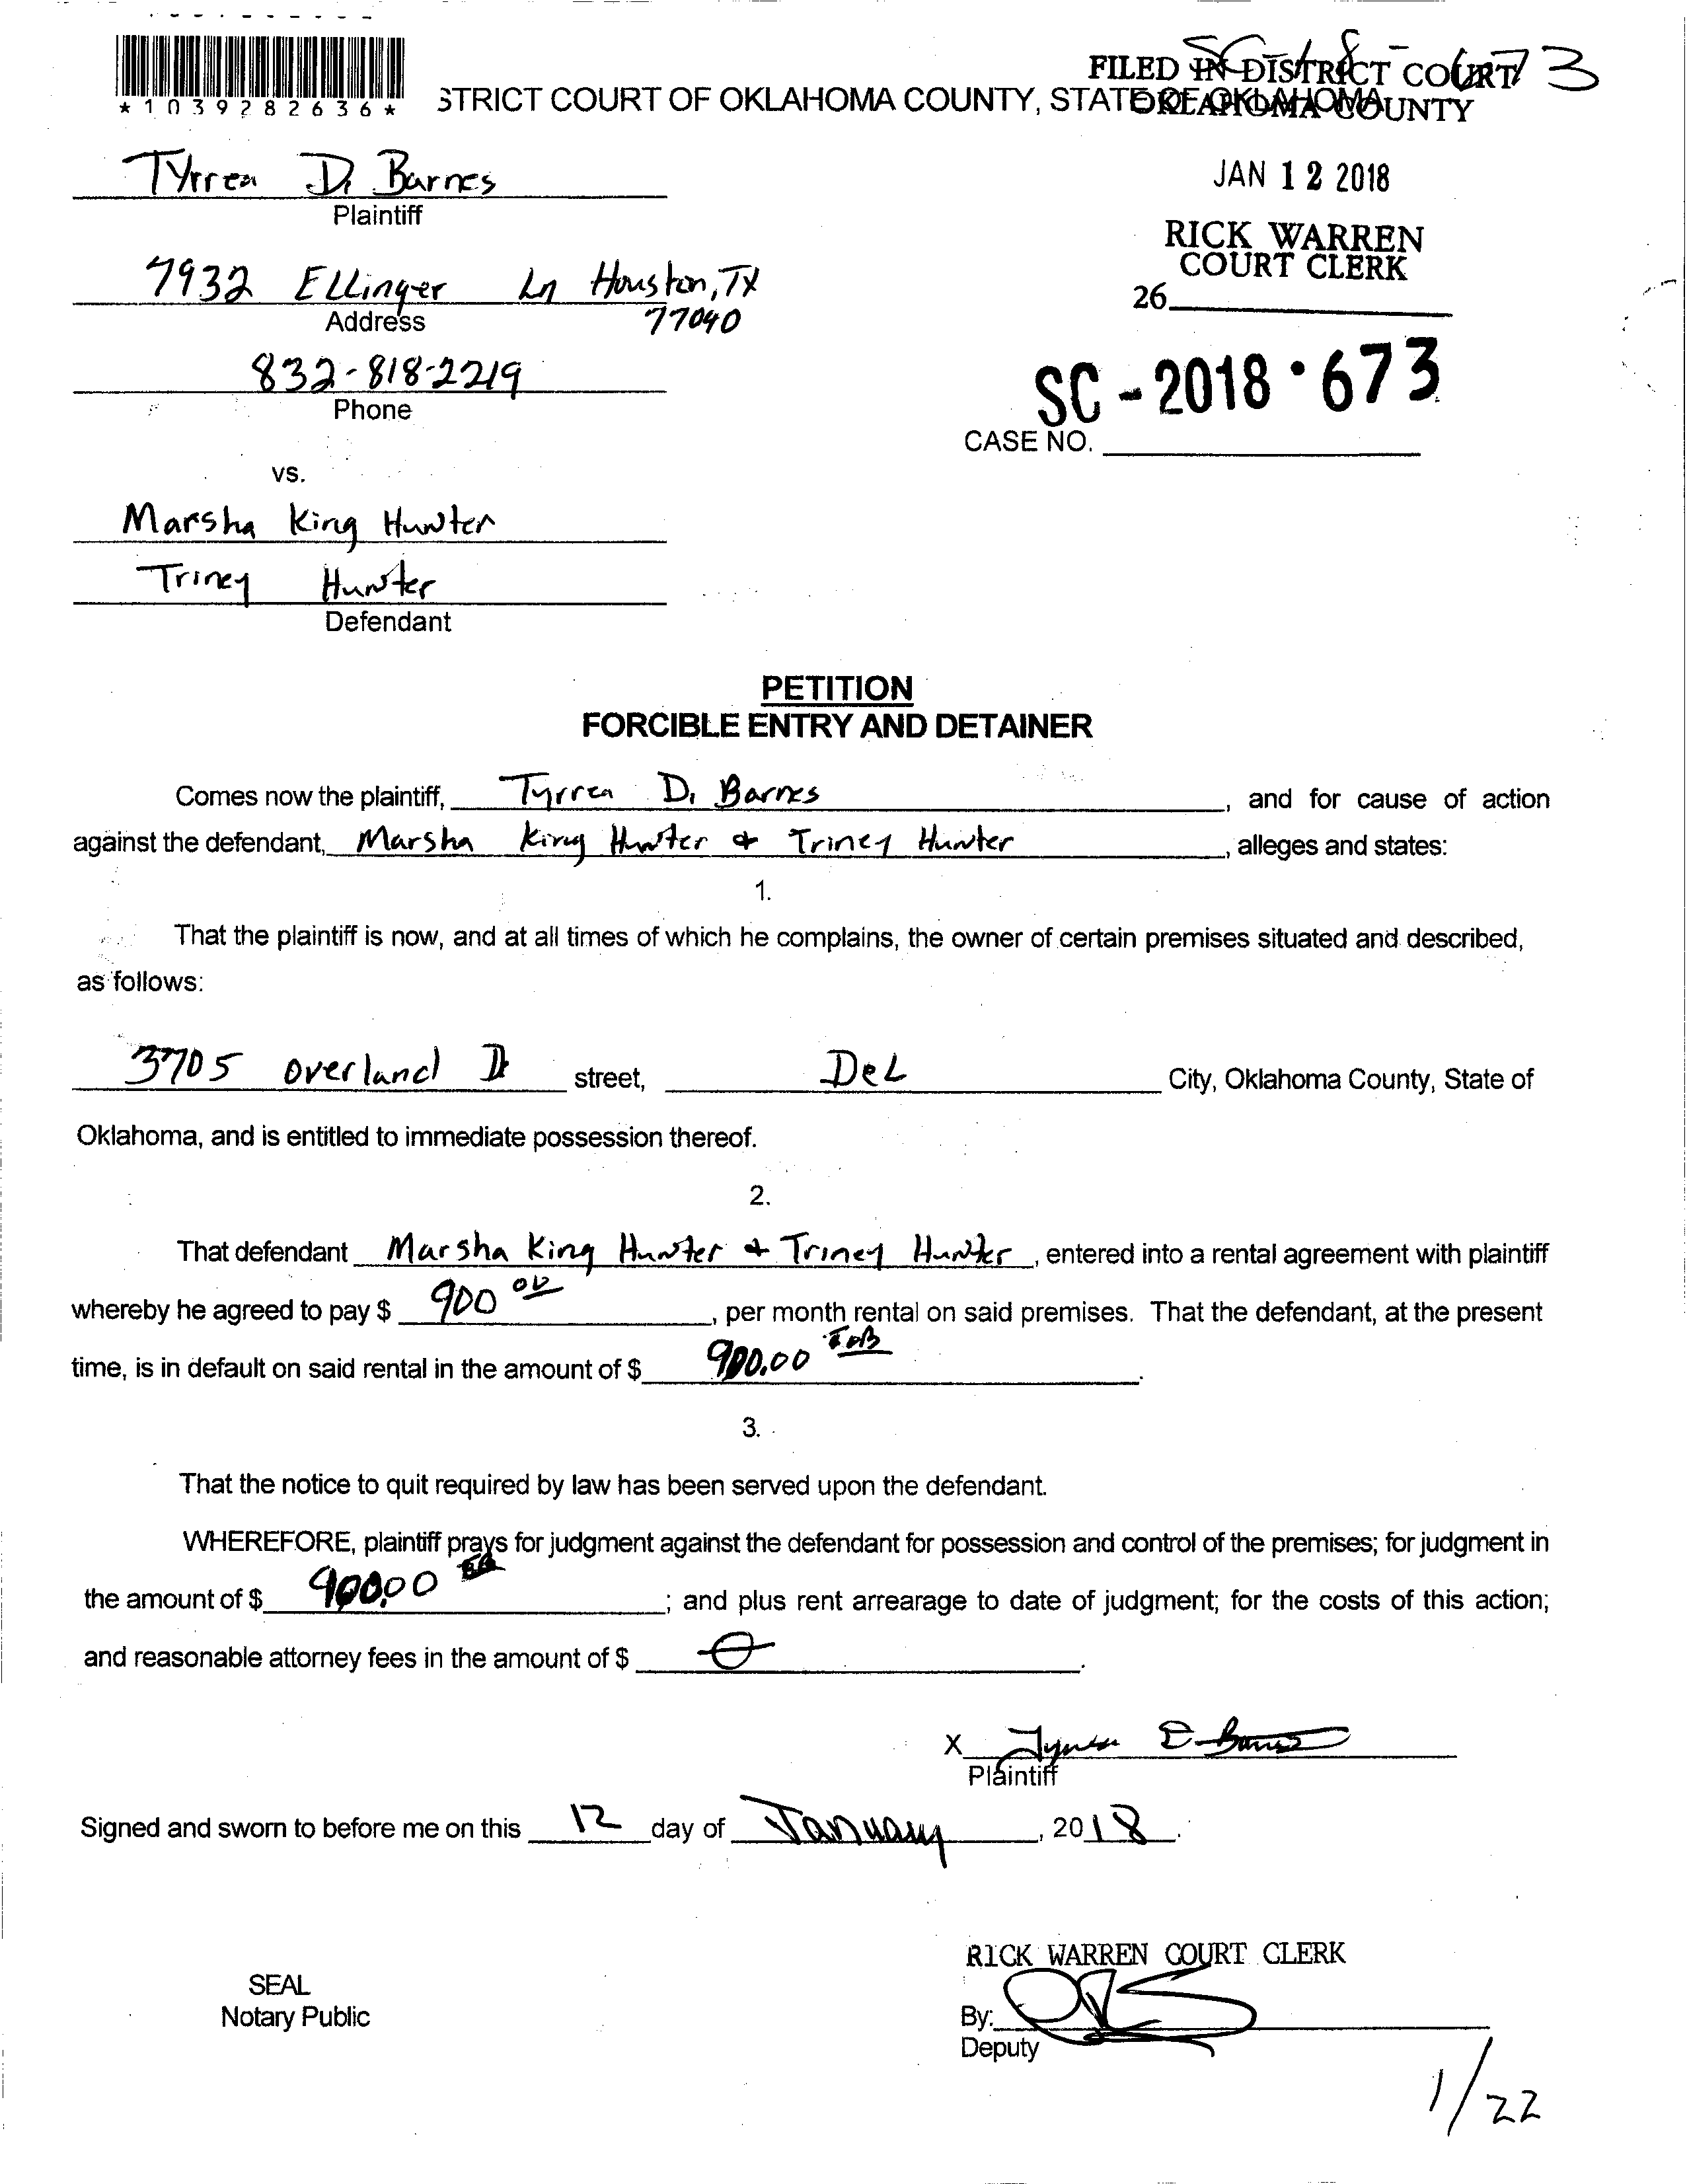 SC-18-673
FILED IN DISTRICT COURT
OKLAHOMA COUNTY
*1039282636*
STRICT COURT OF OKLAHOMA COUNTY, STATE OF OKLAHOMA
Tyrrea D. Barnes
Plaintiff
JAN 12 2018
RICK WARREN
COURT CLERK
26
7932 Ellinger Ln Houston, TX
77040
Address
832-818-2219
Phone
SC-2018·673
CASE NO.
vs.
Marsha King Hunter
Triney Hunter
Defendant
PETITION
FORCIBLE ENTRY AND DETAINER
Comes now the plaintiff, Tyrrea D. Barnes, and for cause of action
against the defendant, Marsha King Hunter & Triney Hunter, alleges and states:
1.
That the plaintiff is now, and at all times of which he complains, the owner of certain premises situated and described,
as follows:
3705 Overland Dr street, Del City, Oklahoma County, State of
Oklahoma, and is entitled to immediate possession thereof.
2.
That defendant Marsha King Hunter & Triney Hunter, entered into a rental agreement with plaintiff
whereby he agreed to pay $ 900 00, per month rental on said premises. That the defendant, at the present
time, is in default on said rental in the amount of $ 900.00.
3.
That the notice to quit required by law has been served upon the defendant.
WHEREFORE, plaintiff prays for judgment against the defendant for possession and control of the premises; for judgment in
the amount of $ 900.00; and plus rent arrearage to date of judgment; for the costs of this action;
and reasonable attorney fees in the amount of $ 0.
X Tyrrea D Barnes
Plaintiff
Signed and sworn to before me on this 12 day of January, 2018.
RICK WARREN COURT CLERK
SEAL
Notary Public
By:
Deputy
1/22